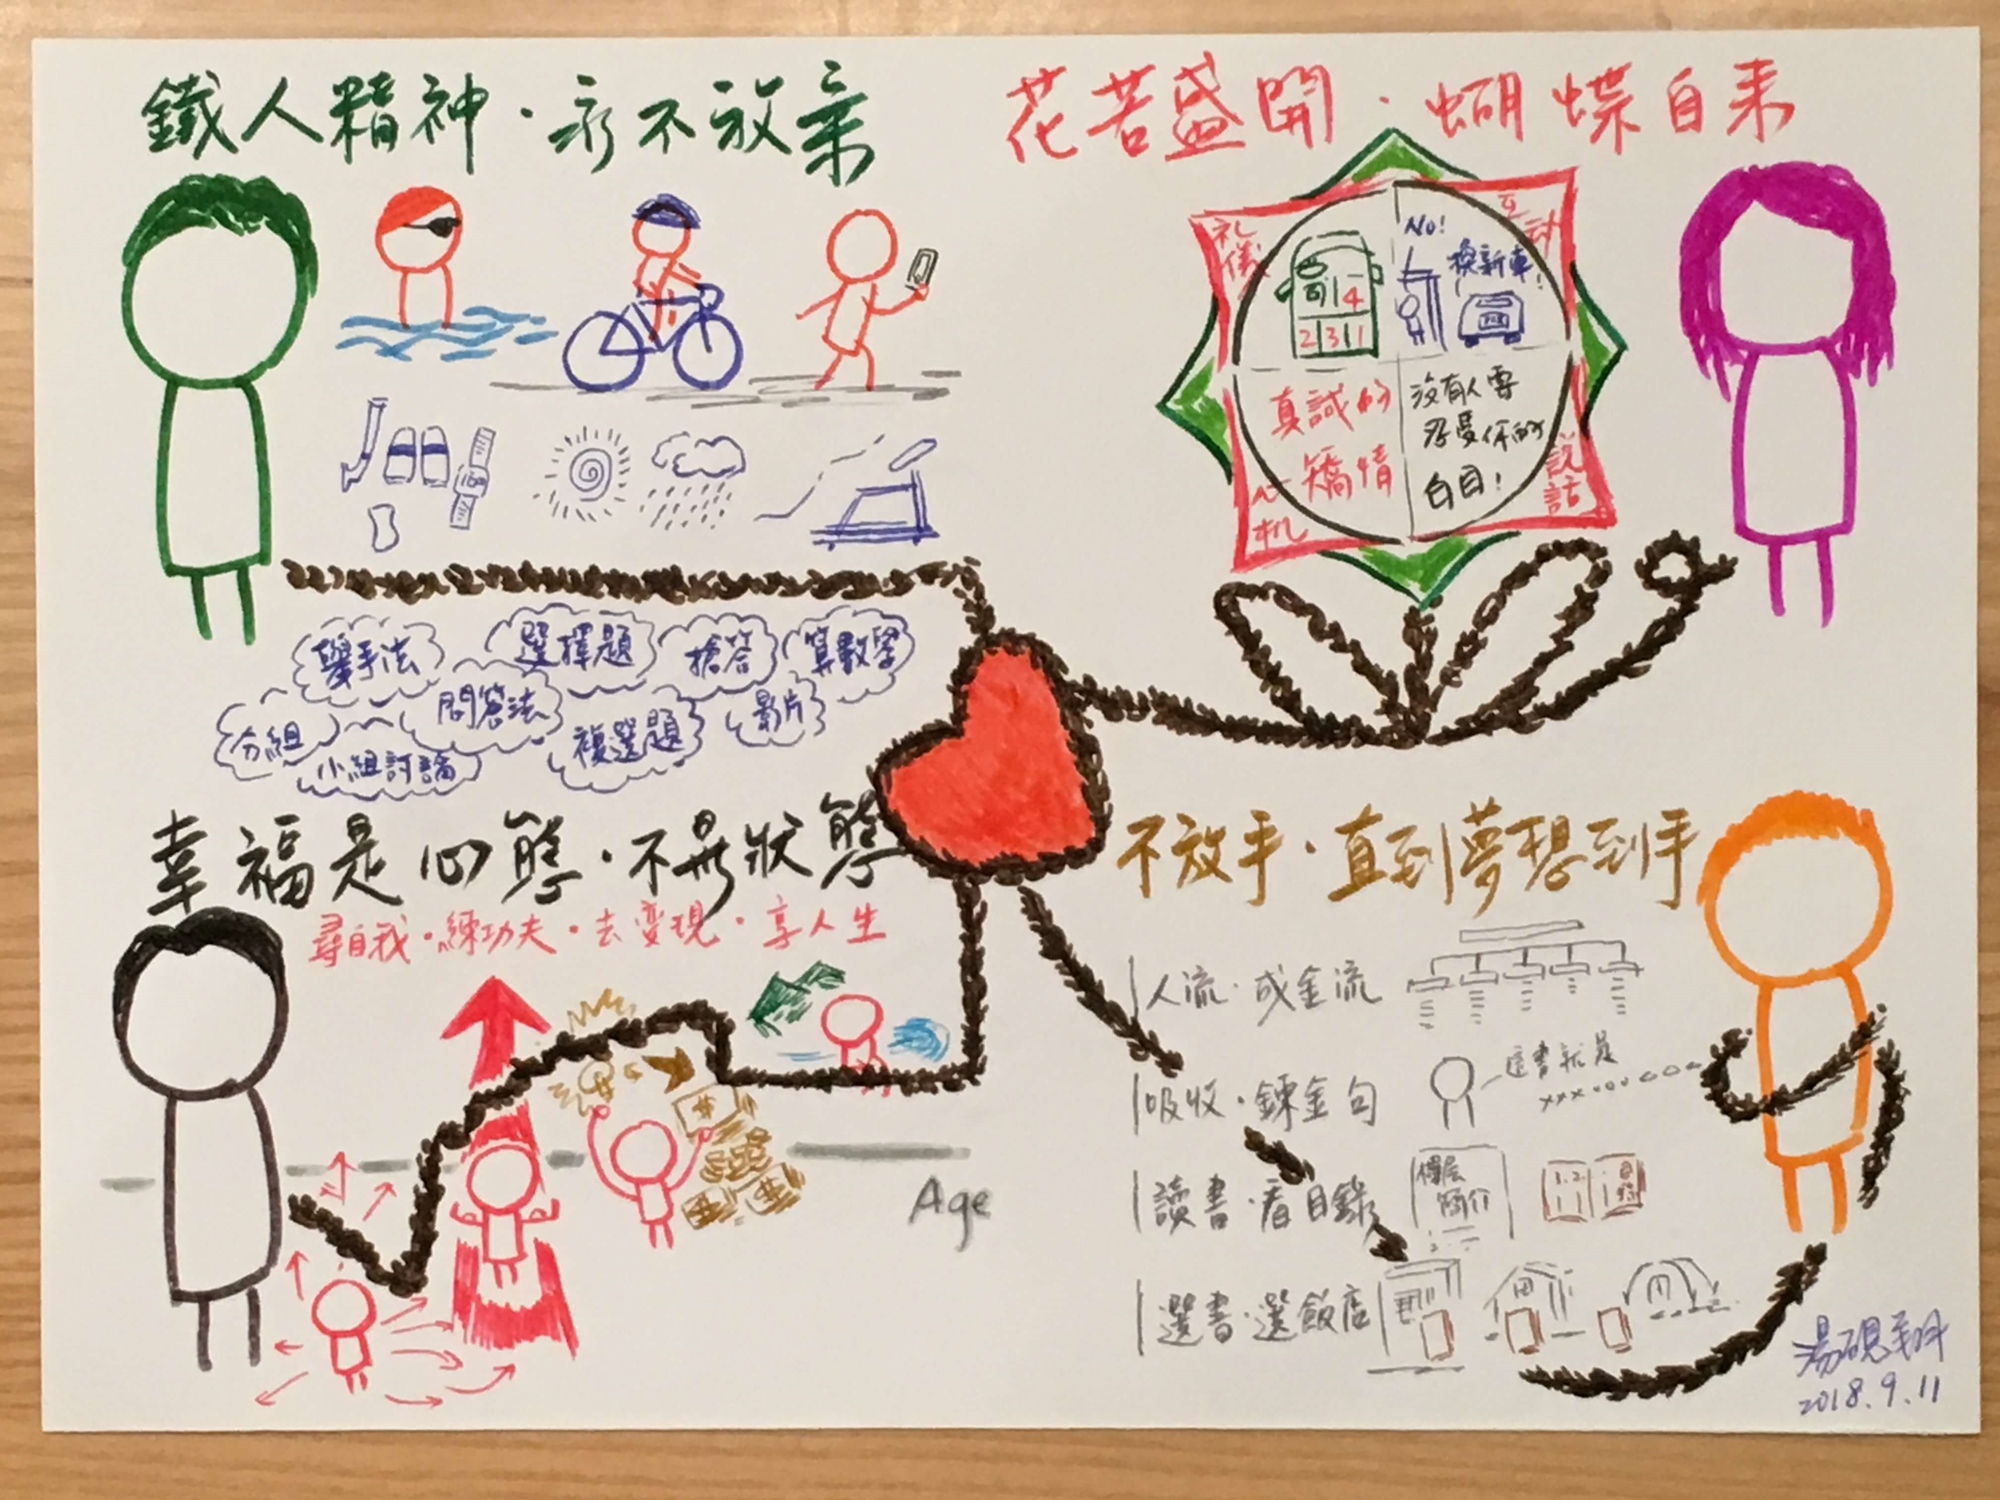 鐵人精神·永不放棄
舉手法
選擇題
搶答
算數學
分組
問答法
複選題
影片
小組討論
花若盛開·蝴蝶自来
礼儀
互动
司14
2311
NO!
換新車!
真誠的
矯情
沒有人要
忍受你的
白目!
心机
説話
幸福是心態·不是狀態
尋自我·練功夫·去変現·享人生
Age
不放手·直到夢想到手
人流·成金流
吸收·鍊金句
這書就是
讀書·看目錄
樓层
简介
選書·選飯店
2018.9.11